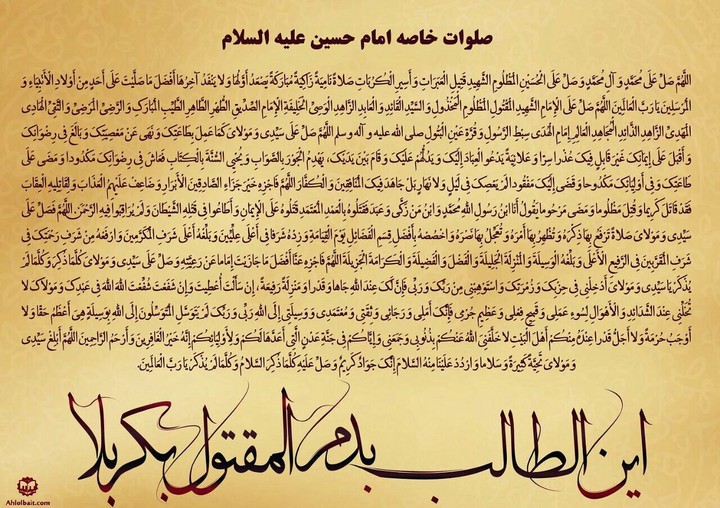 صلوات خاصه امام حسین علیه السلام
اللَّهُمَّ صَلِّ عَلَى مُحَمَّدٍ وَ آلِ مُحَمَّدٍ وَ صَلِّ عَلَى الْحُسَيْنِ الْمَظْلُومِ الشَّهِيدِ قَتِيلِ الْعَبَرَاتِ وَ أَسِيرِ الْكُرُبَاتِ صَلَاةً نَامِيَةً زَاكِيَةً مُبَارَكَةً يَصْعَدُ أَوَّلُهَا وَ لَا يَنْفَدُ آخِرُهَا أَفْضَلَ مَا صَلَّيْتَ عَلَى أَحَدٍ مِنْ أَوْلَادِ الْأَنْبِيَاءِ وَ
الْمُرْسَلِينَ يَا رَبَّ الْعَالَمِينَ اللَّهُمَّ صَلِّ عَلَى الْإِمَامِ الشَّهِيدِ الْمَقْتُولِ الْمَظْلُومِ الْمَخْذُولِ وَ السَّيِّدِ الْقَائِدِ وَ الْعَابِدِ الزَّاهِدِ الْوَصِيِّ الْخَلِيفَةِ الْإِمَامِ الصِّدِّيقِ الطُّهْرِ الطَّاهِرِ الطَّيِّبِ الْمُبَارَكِ وَ الرَّضِيِّ الْمَرْضِيِّ وَ التَّقِيِّ الْهَادِي
الْمَهْدِيِّ الزَّاهِدِ الذَّائِدِ الْمُجَاهِدِ الْعَالِمِ إِمَامِ الْهُدَى سِبْطِ الرَّسُولِ وَ قُرَّةِ عَيْنِ الْبَتُولِ صلی الله علیه و آله و سلم اللَّهُمَّ صَلِّ عَلَى سَيِّدِي وَ مَوْلَايَ كَمَا عَمِلَ بِطَاعَتِكَ وَ نَهَى عَنْ مَعْصِيَتِكَ وَ بَالَغَ فِي رِضْوَانِكَ
وَ أَقْبَلَ عَلَى إِيمَانِكَ غَيْرَ قَابِلٍ فِيكَ عُذْراً سِرّاً وَ عَلَانِيَةً يَدْعُو الْعِبَادَ إِلَيْكَ وَ يَدُلُّهُمْ عَلَيْكَ وَ قَامَ بَيْنَ يَدَيْكَ، يَهْدِمُ الْجَوْرَ بِالصَّوَابِ وَ يُحْيِي السُّنَّةَ بِالْكِتَابِ فَعَاشَ فِي رِضْوَانِكَ مَكْدُوداً وَ مَضَى عَلَى
طَاعَتِكَ وَ فِي أَوْلِيَائِكَ مَكْدُوحاً وَ قَضَى إِلَيْكَ مَفْقُوداً لَمْ يَعْصِكَ فِي لَيْلٍ وَ لَا نَهَارٍ بَلْ جَاهَدَ فِيكَ الْمُنَافِقِينَ وَ الْكُفَّارَ اللَّهُمَّ فَاجْزِهِ خَيْرَ جَزَاءِ الصَّادِقِينَ الْأَبْرَارِ وَ ضَاعِفْ عَلَيْهِمُ الْعَذَابَ وَ لِقَاتِلِيهِ الْعِقَابَ
فَقَدْ قَاتَلَ كَرِيماً وَ قُتِلَ مَظْلُوماً وَ مَضَى مَرْحُوماً يَقُولُ أَنَا ابْنُ رَسُولِ اللهِ مُحَمَّدٍ وَ ابْنُ مَنْ زَكَّى وَ عَبَدَ فَقَتَلُوهُ بِالْعَمْدِ الْمُعْتَمَدِ قَتَلُوهُ عَلَى الْإِيمَانِ وَ أَطَاعُوا فِي قَتْلِهِ الشَّيْطَانَ وَ لَمْ يُرَاقِبُوا فِيهِ الرَّحْمَنَ اللَّهُمَّ فَصَلِّ عَلَى
سَيِّدِي وَ مَوْلَايَ صَلَاةً تَرْفَعُ بِهَا ذِكْرَهُ وَ تُظْهِرُ بِهَا أَمْرَهُ وَ تُعَجِّلُ بِهَا نَصْرَهُ وَ اخْصُصْهُ بِأَفْضَلِ قِسَمِ الْفَضَائِلِ يَوْمَ الْقِيَامَةِ وَ زِدْهُ شَرَفاً فِي أَعْلَى عِلِّيِّينَ وَ بَلِّغْهُ أَعْلَى شَرَفِ الْمُكَرَّمِينَ وَ ارْفَعْهُ مِنْ شَرَفِ رَحْمَتِكَ فِي
شَرَفِ الْمُقَرَّبِينَ فِي الرَّفِيعِ الْأَعْلَى وَ بَلِّغْهُ الْوَسِيلَةَ وَ الْمَنْزِلَةَ الْجَلِيلَةَ وَ الْفَضْلَ وَ الْفَضِيلَةَ وَ الْكَرَامَةَ الْجَزِيلَةَ اللَّهُمَّ فَاجْزِهِ عَنَّا أَفْضَلَ مَا جَازَيْتَ إِمَاماً عَنْ رَعِيَّتِهِ وَ صَلِّ عَلَى سَيِّدِي وَ مَوْلَايَ كُلَّمَا ذُكِرَ وَ كُلَّمَا لَمْ
يُذْكَرْ يَا سَيِّدِي وَ مَوْلَايَ أَدْخِلْنِي فِي حِزْبِكَ وَ زُمْرَتِكَ وَ اسْتَوْهِبْنِي مِنْ رَبِّكَ وَ رَبِّي فَإِنَّ لَكَ عِنْدَ اللهِ جَاهاً وَ قَدْراً وَ مَنْزِلَةً رَفِيعَةً، إِنْ سَأَلْتَ أُعْطِيتَ وَ إِنْ شَفَعْتَ شُفِّعْتَ اللهَ اللهَ فِي عَبْدِكَ وَ مَوْلَاكَ لَا
تُخَلِّنِي عِنْدَ الشَّدَائِدِ وَ الْأَهْوَالِ لِسُوءِ عَمَلِي وَ قَبِيحِ فِعْلِي وَ عَظِيمِ جُرْمِي فَإِنَّكَ أَمَلِي وَ رَجَائِي وَ ثِقَتِي وَ مُعْتَمَدِي وَ وَسِيلَتِي إِلَى اللهِ رَبِّي وَ رَبِّكَ لَمْ يَتَوَسَّلِ الْمُتَوَسِّلُونَ إِلَى اللهِ بِوَسِيلَةٍ هِيَ أَعْظَمُ حَقّاً وَ لَا
أَوْجَبُ حُرْمَةً وَ لَا أَجَلُّ قَدْراً عِنْدَهُ مِنْكُمْ أَهْلَ الْبَيْتِ لَا خَلَّفَنِيَ اللهُ عَنْكُمْ بِذُنُوبِي وَ جَمَعَنِي وَ إِيَّاكُمْ فِي جَنَّةِ عَدْنٍ الَّتِي أَعَدَّهَا لَكُمْ وَ لِأَوْلِيَائِكُمْ إِنَّهُ خَيْرُ الْغَافِرِينَ وَ أَرْحَمُ الرَّاحِمِينَ اللَّهُمَّ أَبْلِغْ سَيِّدِي
وَ مَوْلَايَ تَحِيَّةً كَثِيرَةً وَ سَلَاماً وَ ارْدُدْ عَلَيْنَا مِنْهُ السَّلَامَ إِنَّكَ جَوَادٌ كَرِيمٌ وَ صَلِّ عَلَيْهِ كُلَّمَا ذُكِرَ السَّلَامُ وَ كُلَّمَا لَمْ يُذْكَرْ يَا رَبَّ الْعَالَمِينَ.
این الطالب بدم المقتول بکربلا
Ahlolbait.com